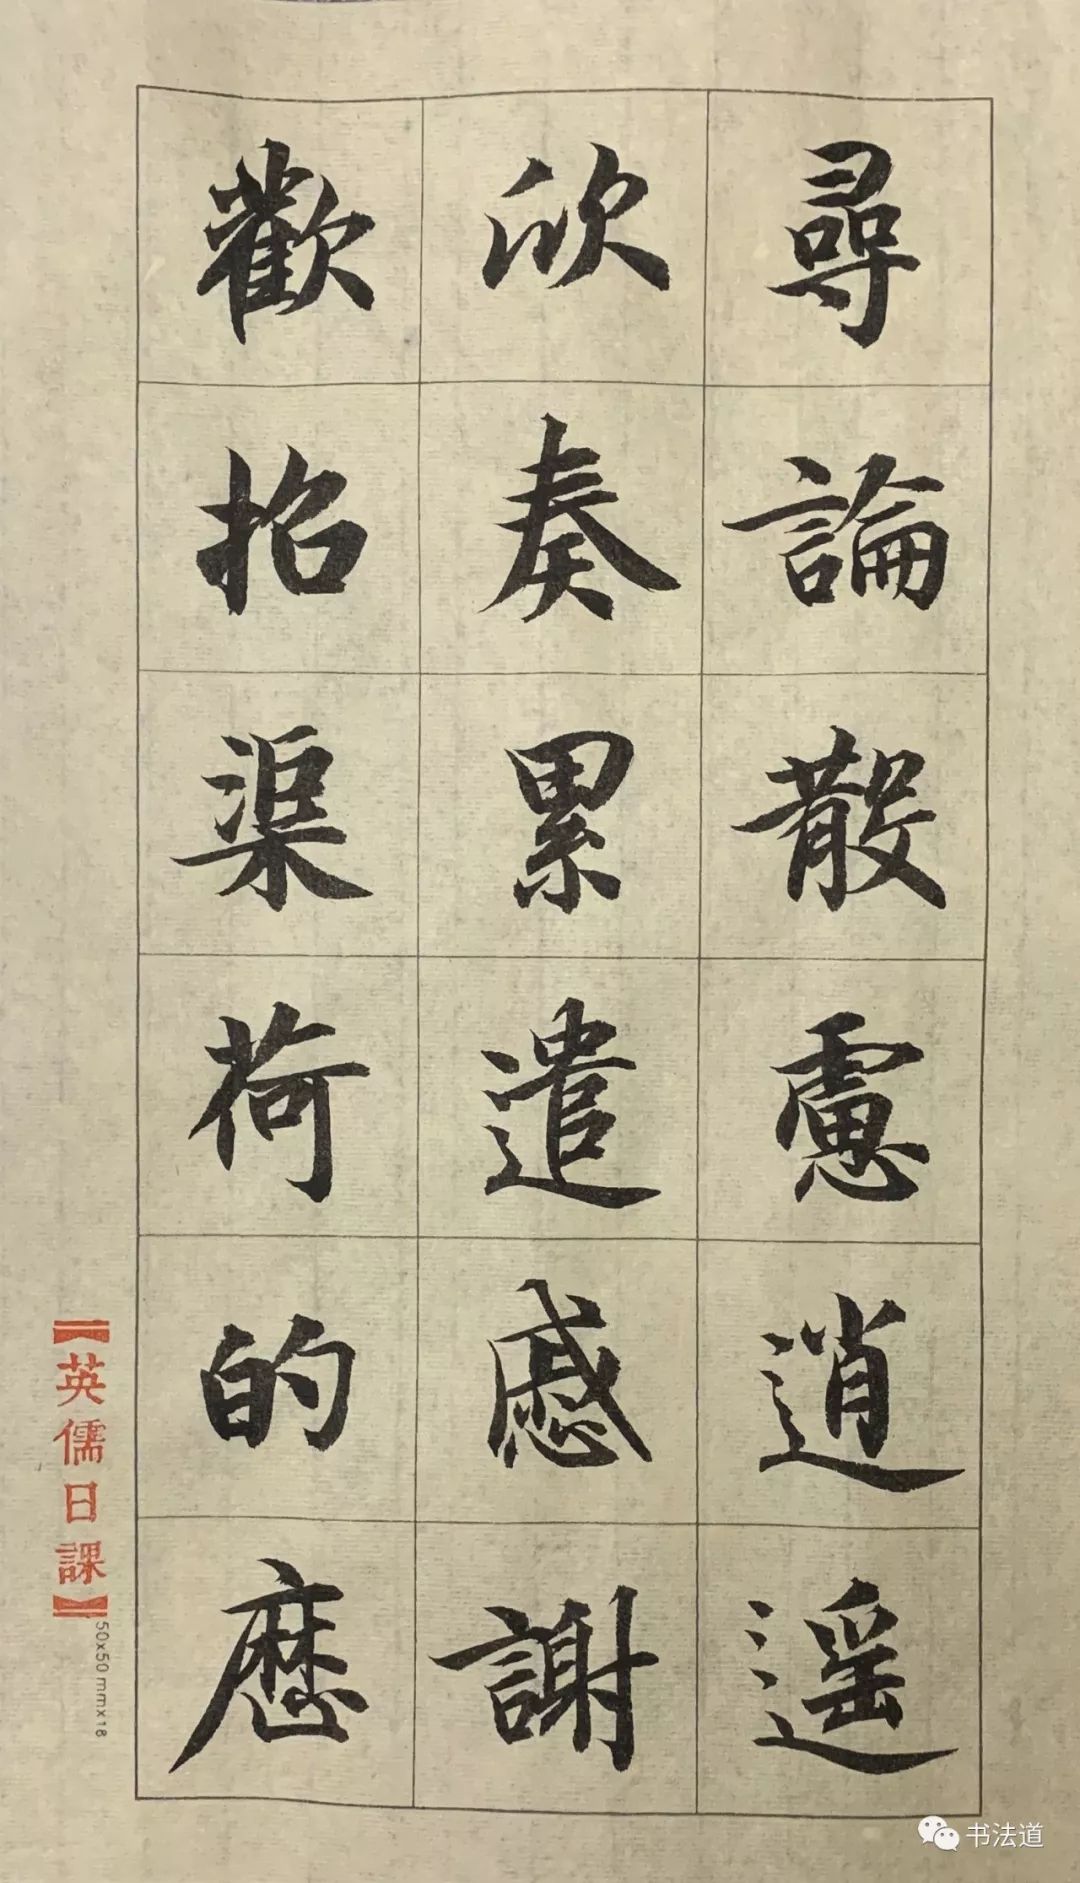 尋論散慮逍遥
欣奏累遣慼謝
歡招渠荷的歷
【英儒日課】
50x50mmx18
书法道